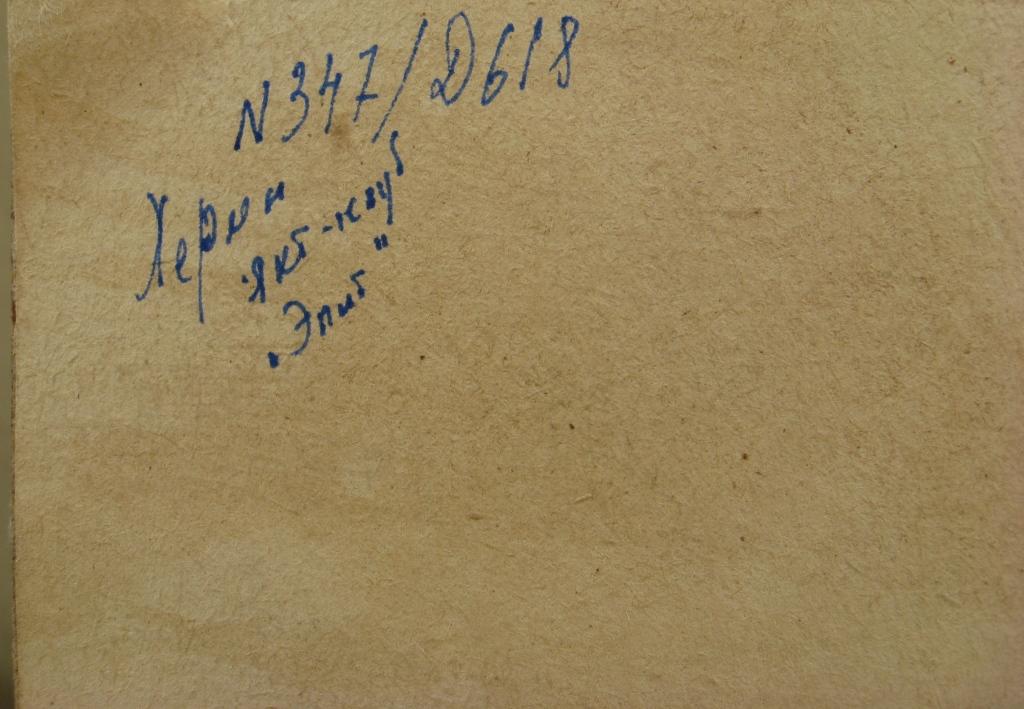 N 347/D618
Херми
Яхт-клуб
„Элит"